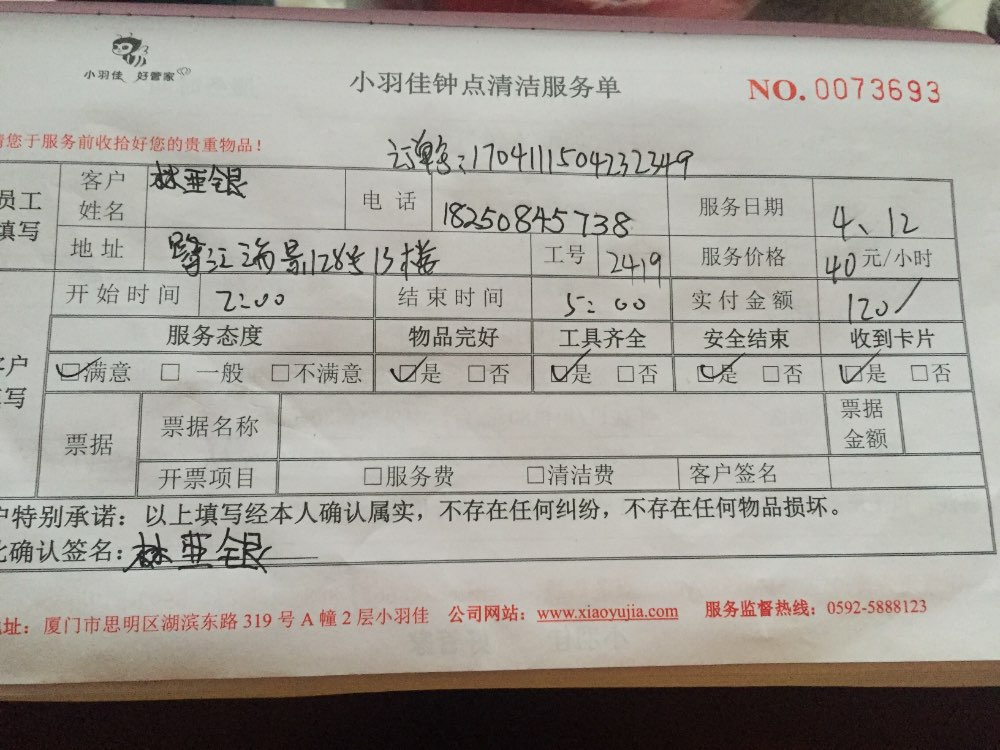 小羽佳 好管家
小羽佳钟点清洁服务单
NO. 0073693
请您于服务前收拾好您的贵重物品！
单号：1704111504232349
员工填写
客户姓名 林亚银 电话 18250845738 服务日期 4、12
地址 鹭江海景128号13楼 工号 2419 服务价格 40元/小时
开始时间 2:00 结束时间 5:00 实付金额 120
客户填写
服务态度 物品完好 工具齐全 安全结束 收到卡片
☑满意 □一般 □不满意 ☑是 □否 ☑是 □否 ☑是 □否 ☑是 □否
票据 票据名称 票据金额
开票项目 □服务费 □清洁费 客户签名
户特别承诺：以上填写经本人确认属实，不存在任何纠纷，不存在任何物品损坏。
此确认签名：林亚银
地址：厦门市思明区湖滨东路 319 号 A 幢 2 层小羽佳 公司网站：www.xiaoyujia.com 服务监督热线：0592-5888123